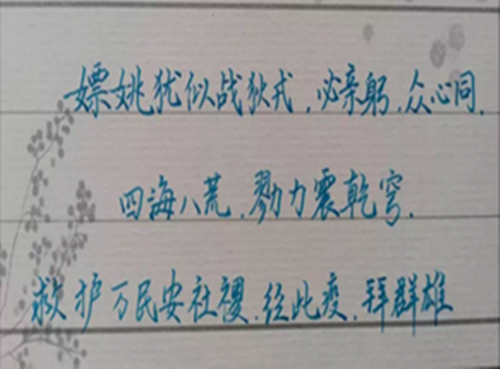 嫖姚犹似战狄戎，必亲躬，众心同，
四海八荒，勠力震乾穹。
救护万民安社稷，经此疫，拜群雄